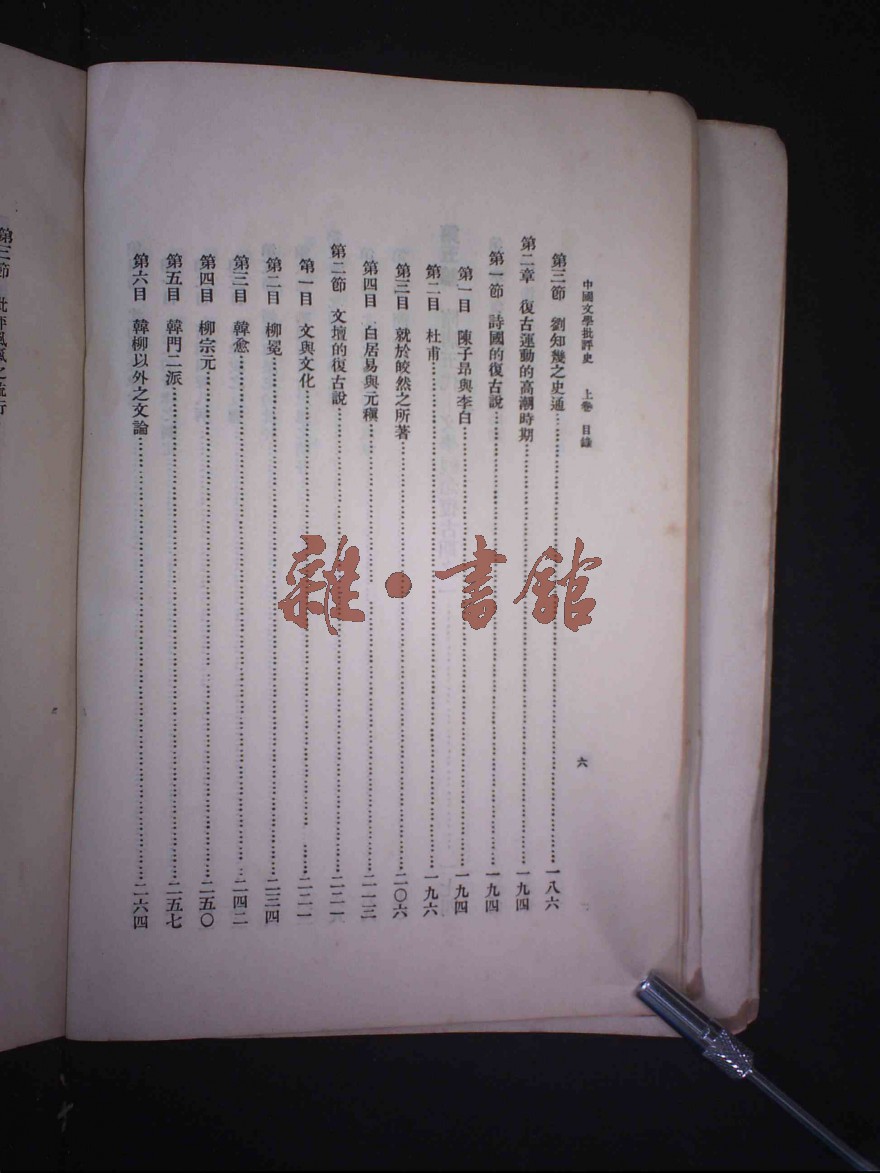 中國文學批評史　上卷　目錄　六
第三節　劉知幾之史通……一八六
第二章　復古運動的高潮時期……一九四
第一節　詩國的復古說……一九四
第一目　陳子昂與李白……一九四
第二目　杜甫……一九六
第三目　就於皎然之所著……二〇六
第四目　白居易與元稹……二一三
第二節　文壇的復古說……二二一
第一目　文與文化……二二一
第二目　柳冕……二三四
第三目　韓愈……二四二
第四目　柳宗元……二五〇
第五目　韓門二派……二五七
第六目　韓柳以外之文論……二六四
第三節
雜·書館